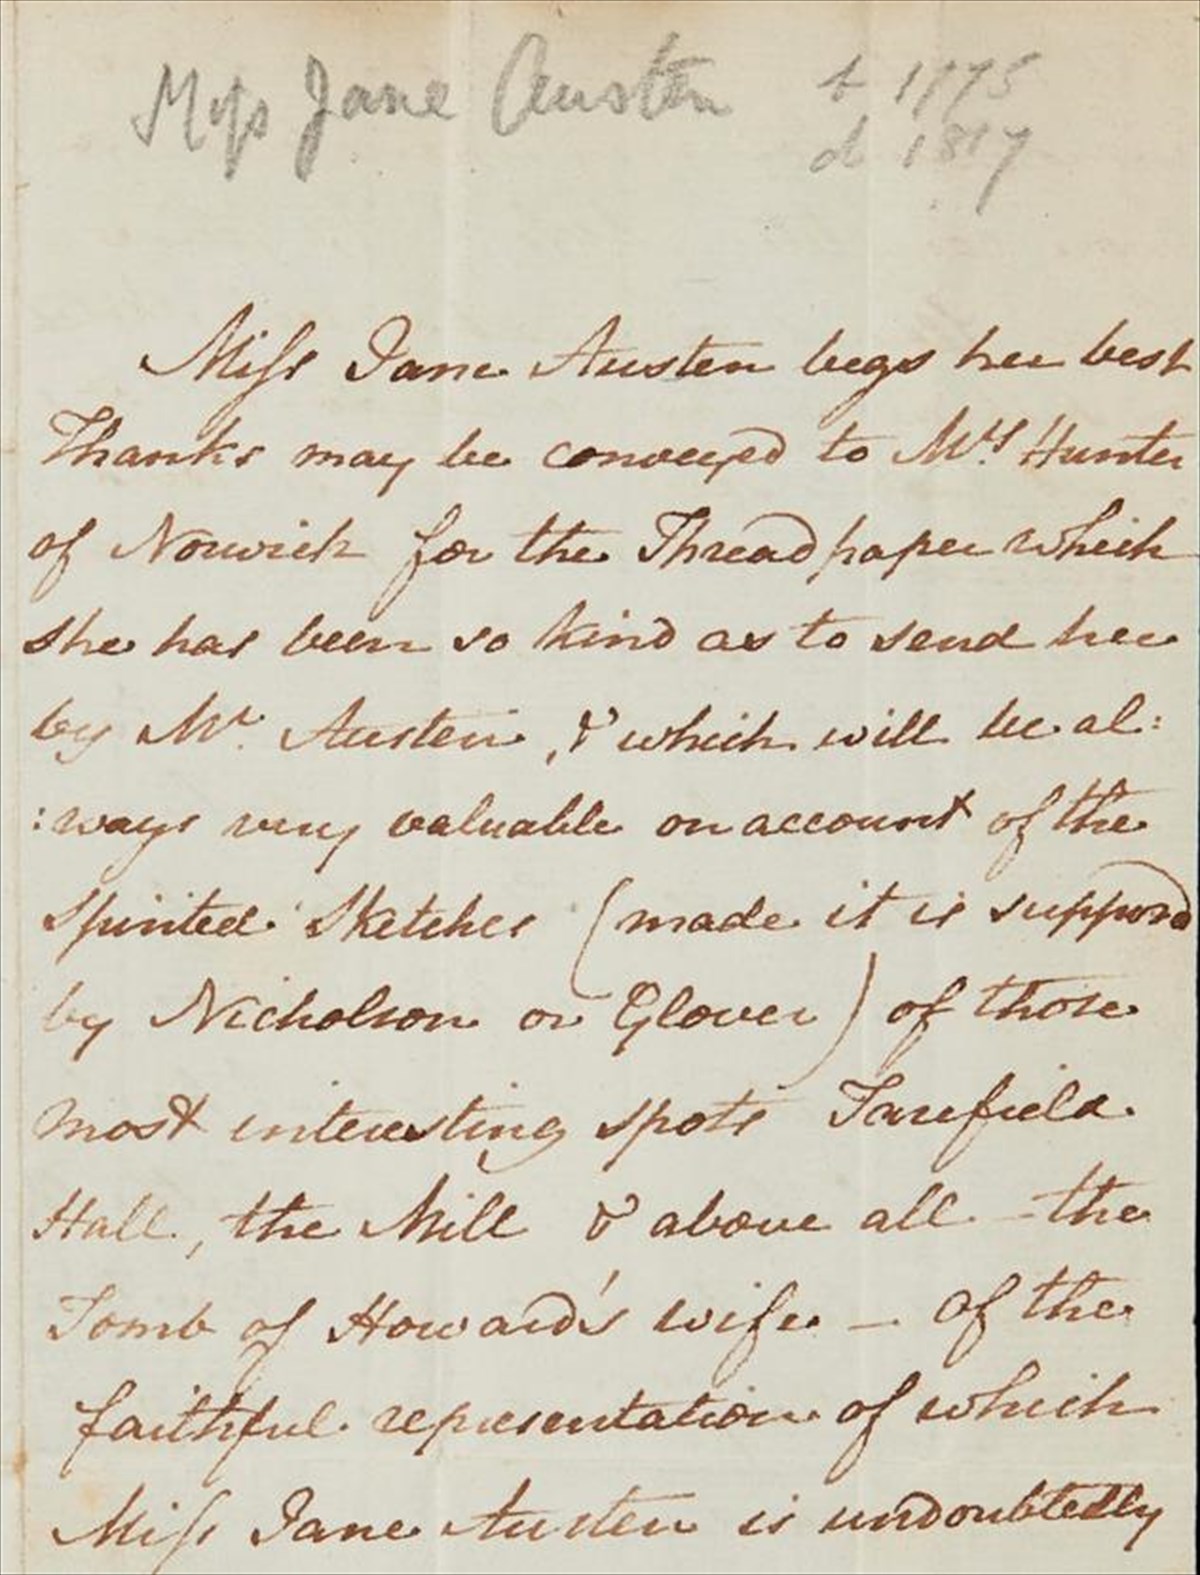 Miss Jane Austen b 1775
d 1817
Miss Jane Austen begs her best
Thanks may be conveyed to Mrs Hunter
of Norwich for the Threadpaper which
she has been so kind as to send her
by Mr. Austen, & which will be al:
:ways very valuable on account of the
spirited Sketches (made it is supposed
by Nicholson or Glover) of those
most interesting spots Tarefield
Hall, the Mill & above all - the
Tomb of Howard's wife - of the
faithful representation of which
Miss Jane Austen is undoubtedly